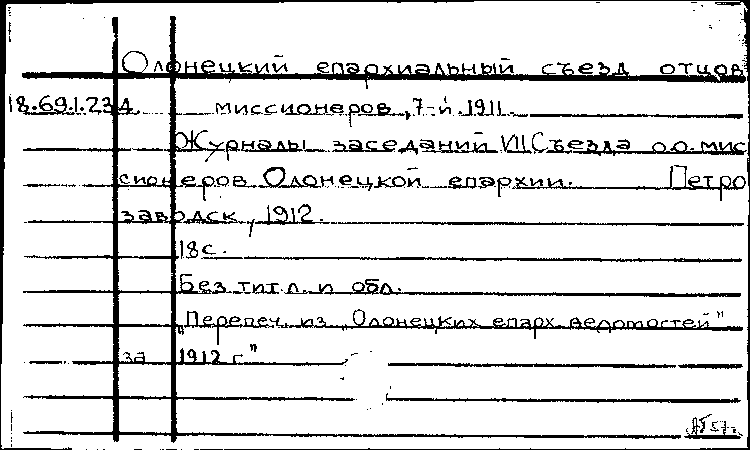 Олонецкий епархиальный съезд отцов
18.69.1.234. миссионеров, 7-й. 1911.
Журналы заседаний VII Съезда о.о. мис
сионеров Олонецкой епархии. Петро
заводск, 1912.
18с.
Без тит.л. и обл.
"Перепеч. из „Олонецких епарх. ведомостей"
за 1912 г."